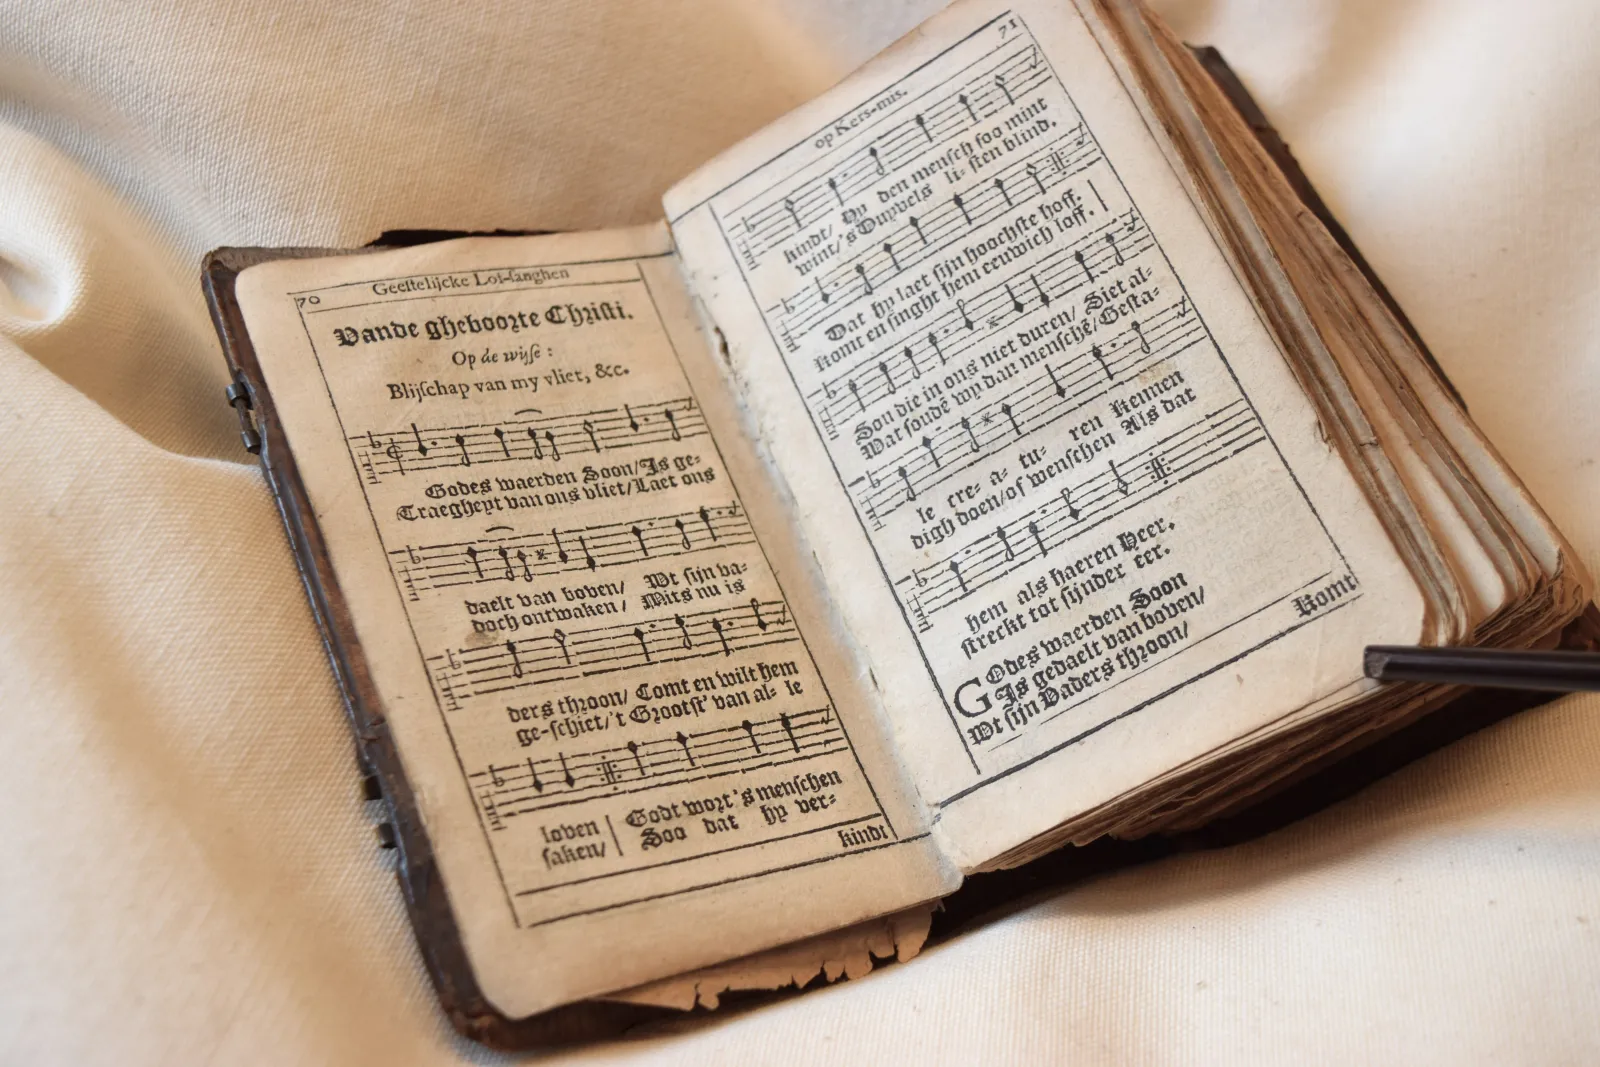 70
Geestelijcke Lof-sanghen
Vande gheboorte Christi.
Op de wijse:
Blijschap van my vliet, &c.
Godes waerden Soon/ Is ge-
Traegheyt van ons vliet/ Laet ons
daelt van boven/ Wt sijn va-
doch ontwaken/ Mits nu is
ders throon/ Comt en wilt hem
ge-schiet/ 't Grootst' van al- le
loven | Godt wort 's menschen
saken/ | Soo dat hy ver-
kindt
op Kers-mis.
71
kindt/ Hy den mensch soo mint
wint/ 's Duyvels li- sten blind.
Dat hy laet sijn hoochste hoff. |
komt en singht hem eeuwich loff. |
Son die in ons niet duren/ Siet al-
Wat soudē wy dan menschē/ Gesta-
le cre- a- tu- ren Kennen
digh doen/ of wenschen Als dat
hem als haeren Heer.
streckt tot sijnder eer.
GOdes waerden Soon
Is gedaelt van boven/
Wt sijn Vaders throon/
Komt